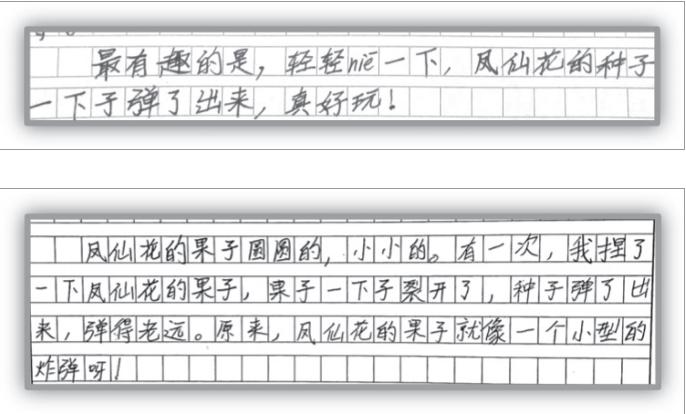 最有趣的是，轻轻niē一下，凤仙花的种子
一下子弹了出来，真好玩！
凤仙花的果子圆圆的，小小的。有一次，我捏了
一下凤仙花的果子，果子一下子裂开了，种子弹了出
来，弹得老远。原来，凤仙花的果子就像一个小型的
炸弹呀！